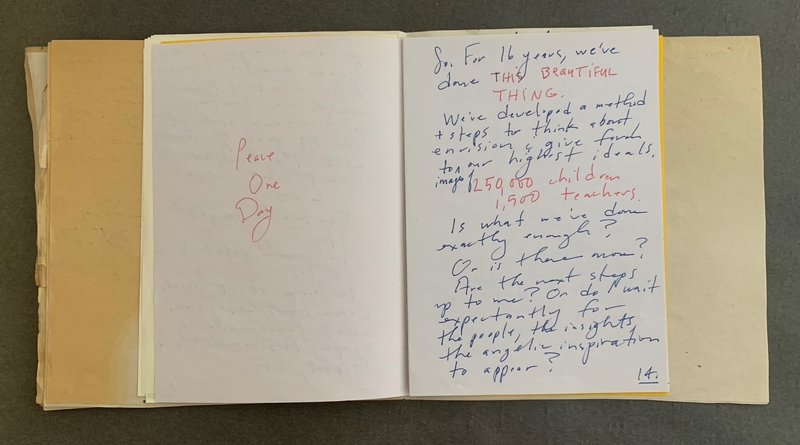 Peace
One
Day
So. For 16 years, we've
done THIS BEAUTIFUL
THING.
We've developed a method
+ steps to think about
envision & give form
to our highest ideals.
images/
250,000 children
1,500 teachers.
Is what we've done
exactly enough?
Or is there more?
Are the next steps
up to me? Or do I wait
expectantly for
the people, the insights,
the angelic inspiration
to appear?
14.